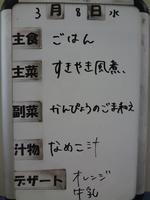 3月8日水
主食 ごはん
主菜 すきやき風煮、
副菜 かんぴょうのごま和え
汁物 なめこ汁
デザート オレンジ
牛乳